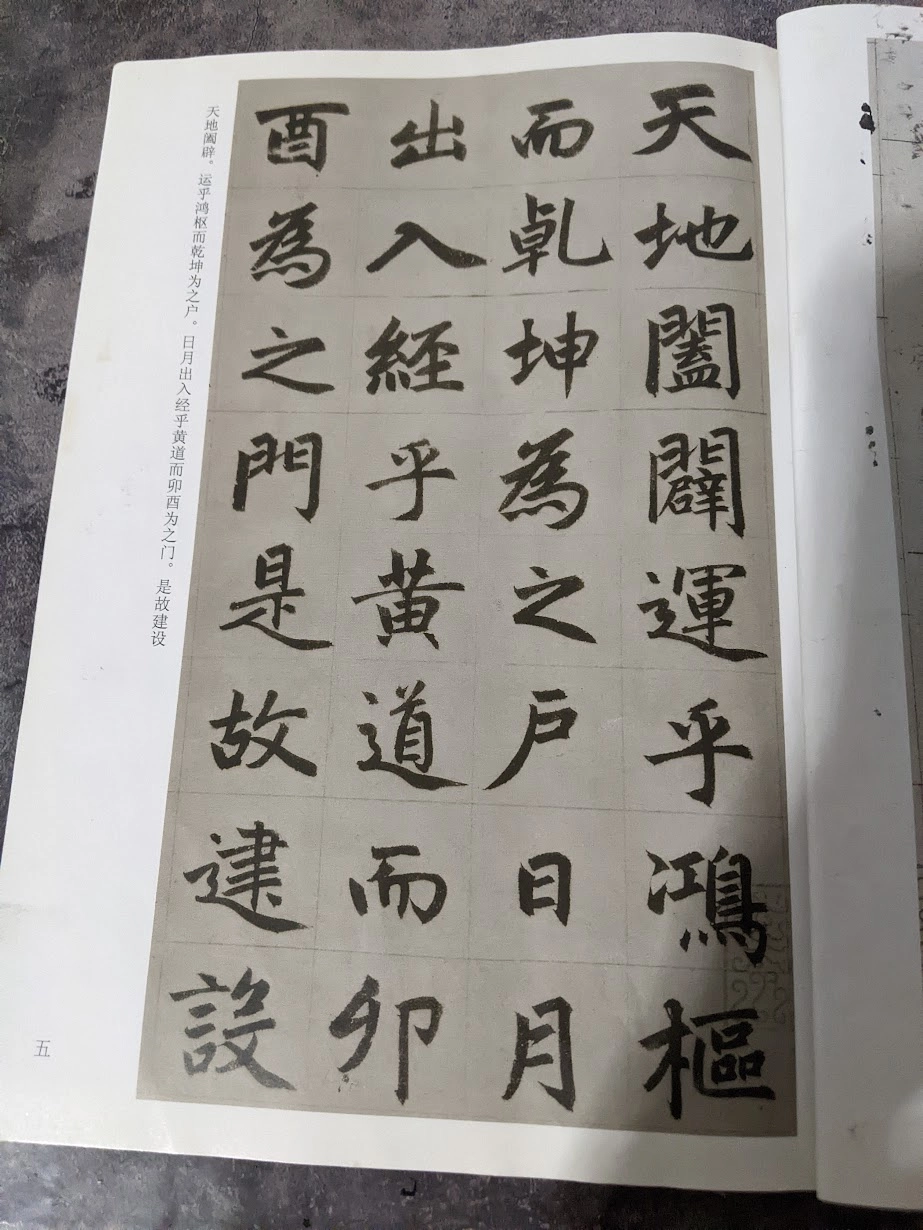 天地闔闢運乎鴻樞
而乹坤為之戶日月
出入經乎黃道而卯
酉為之門是故建設
天地阖辟。运乎鸿枢而乾坤为之户。日月出入经乎黄道而卯酉为之门。是故建设
五